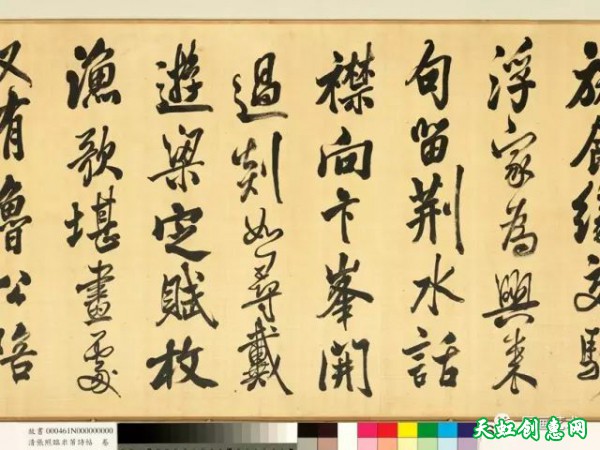 旅食緣交駐
浮家為興來
句留荆水話
襟向卞峯開
過剡如尋戴
遊梁定賦枚
漁歌堪畫處
又有魯公陪
故書 000461N000000000
清張照臨米芾詩帖 卷
天虹创惠网